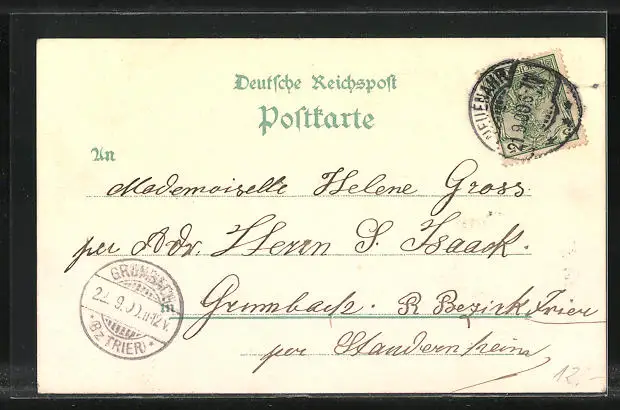 Deutsche Reichspost
Postkarte
An
Mademoiselle Helene Gross
per Adr. Herrn S. Isaack.
in Grumbach. R Bezirk Trier
per Staudernheim
NEUENAHR
21.9.00.6-7N
GRUMBACH
22.9.00.11-12V.
*(BZ TRIER)*
12.-